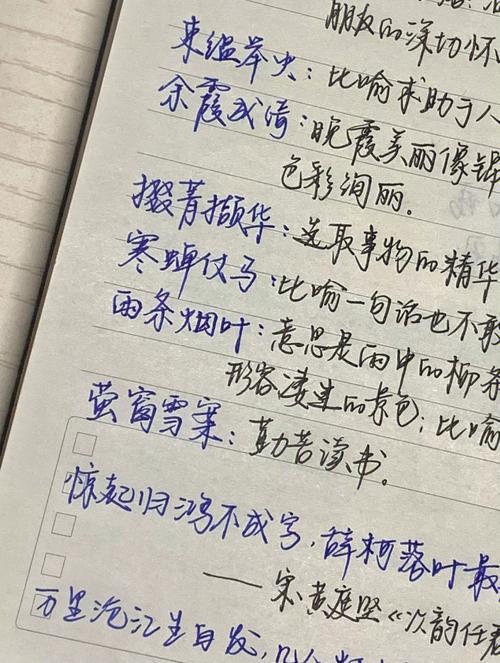 朋友的深切怀
束缊举火：比喻求助于人
余霞成绮：晚霞美丽像锦
色彩绚丽。
掇菁撷华：选取事物的精华
寒蝉仗马：比喻一句话也不敢
雨条烟叶：意思是雨中的柳条
形容凄迷的景色；比喻
萤窗雪案：勤苦读书。
惊起归鸿不成字，辞柯落叶最
——宋·黄庭坚《次韵任君
万里沧江生白发，几人